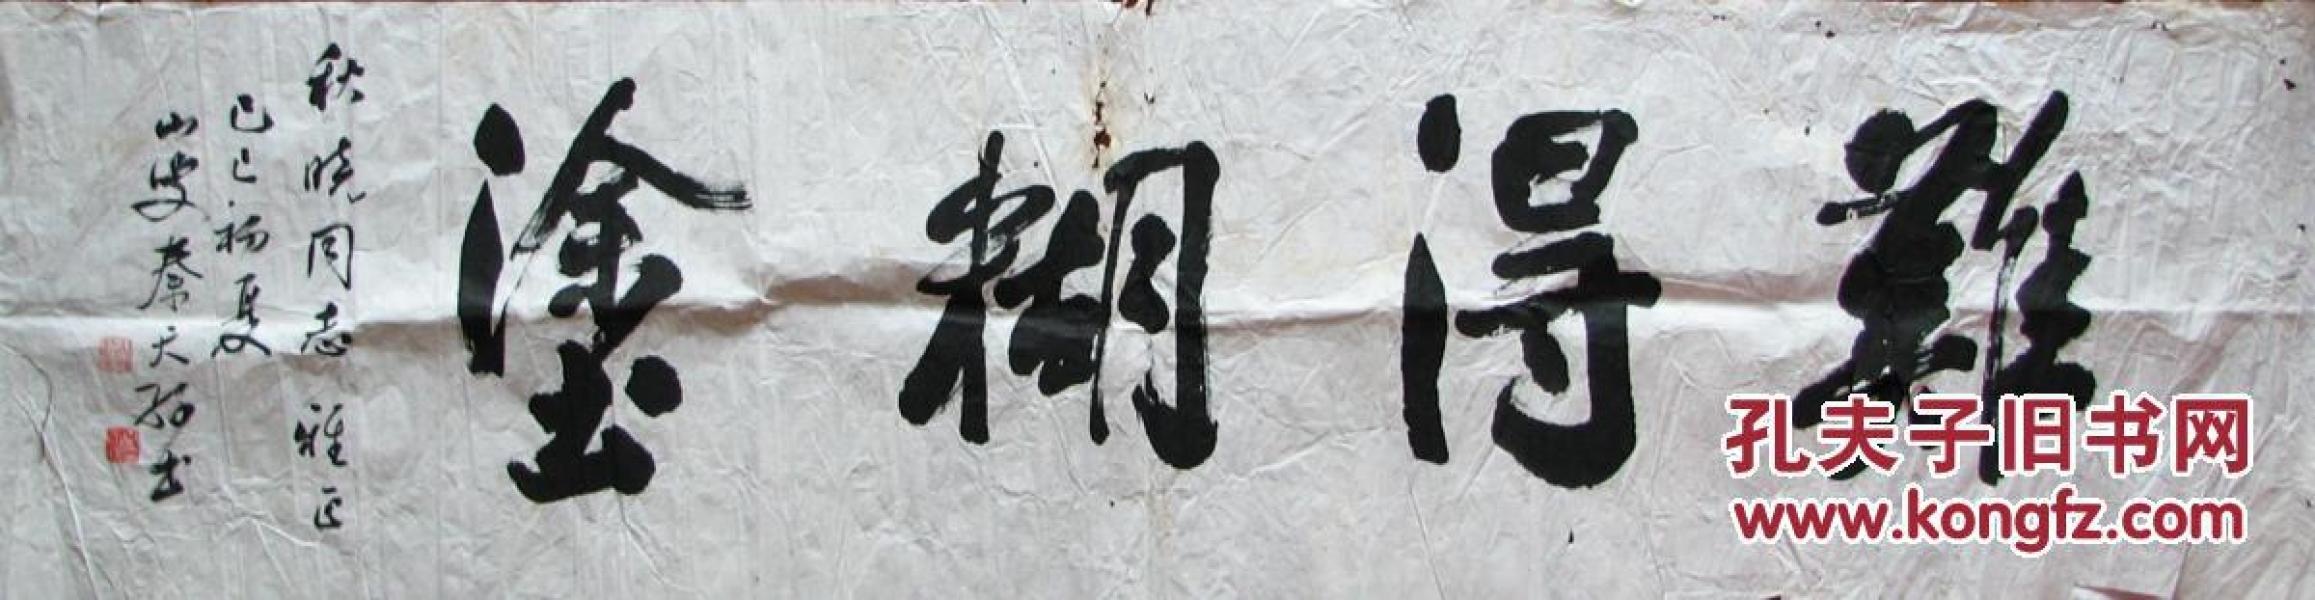 難得糊塗
秋晓同志雅正
己巳初夏
山叟秦天
书
孔夫子旧书网
www.kongfz.com